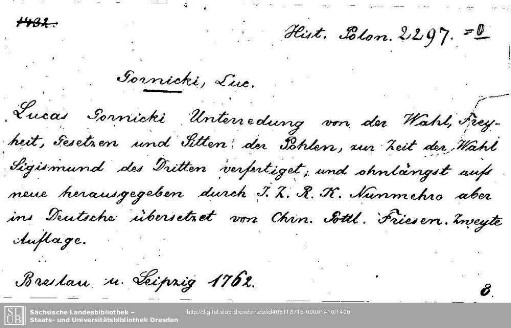 1432.
Hist. Polon. 2297. =0
Gornicki, Luc.
Lucas Gornicki Unterredung von der Wahl, Frey-
heit, Gesetzen und Sitten der Pohlen, zur Zeit der Wahl
Sigismund des Dritten verfertiget, und ohnlängst aufs
neue herausgegeben durch J. Z. R. K. Nunmehro aber
ins Deutsche übersetzet von Chrn. Gottl. Friesen. Zweyte
Auflage.
Breslau u. Leipzig 1762.
8.
Sächsische Landesbibliothek –
Staats- und Universitätsbibliothek Dresden